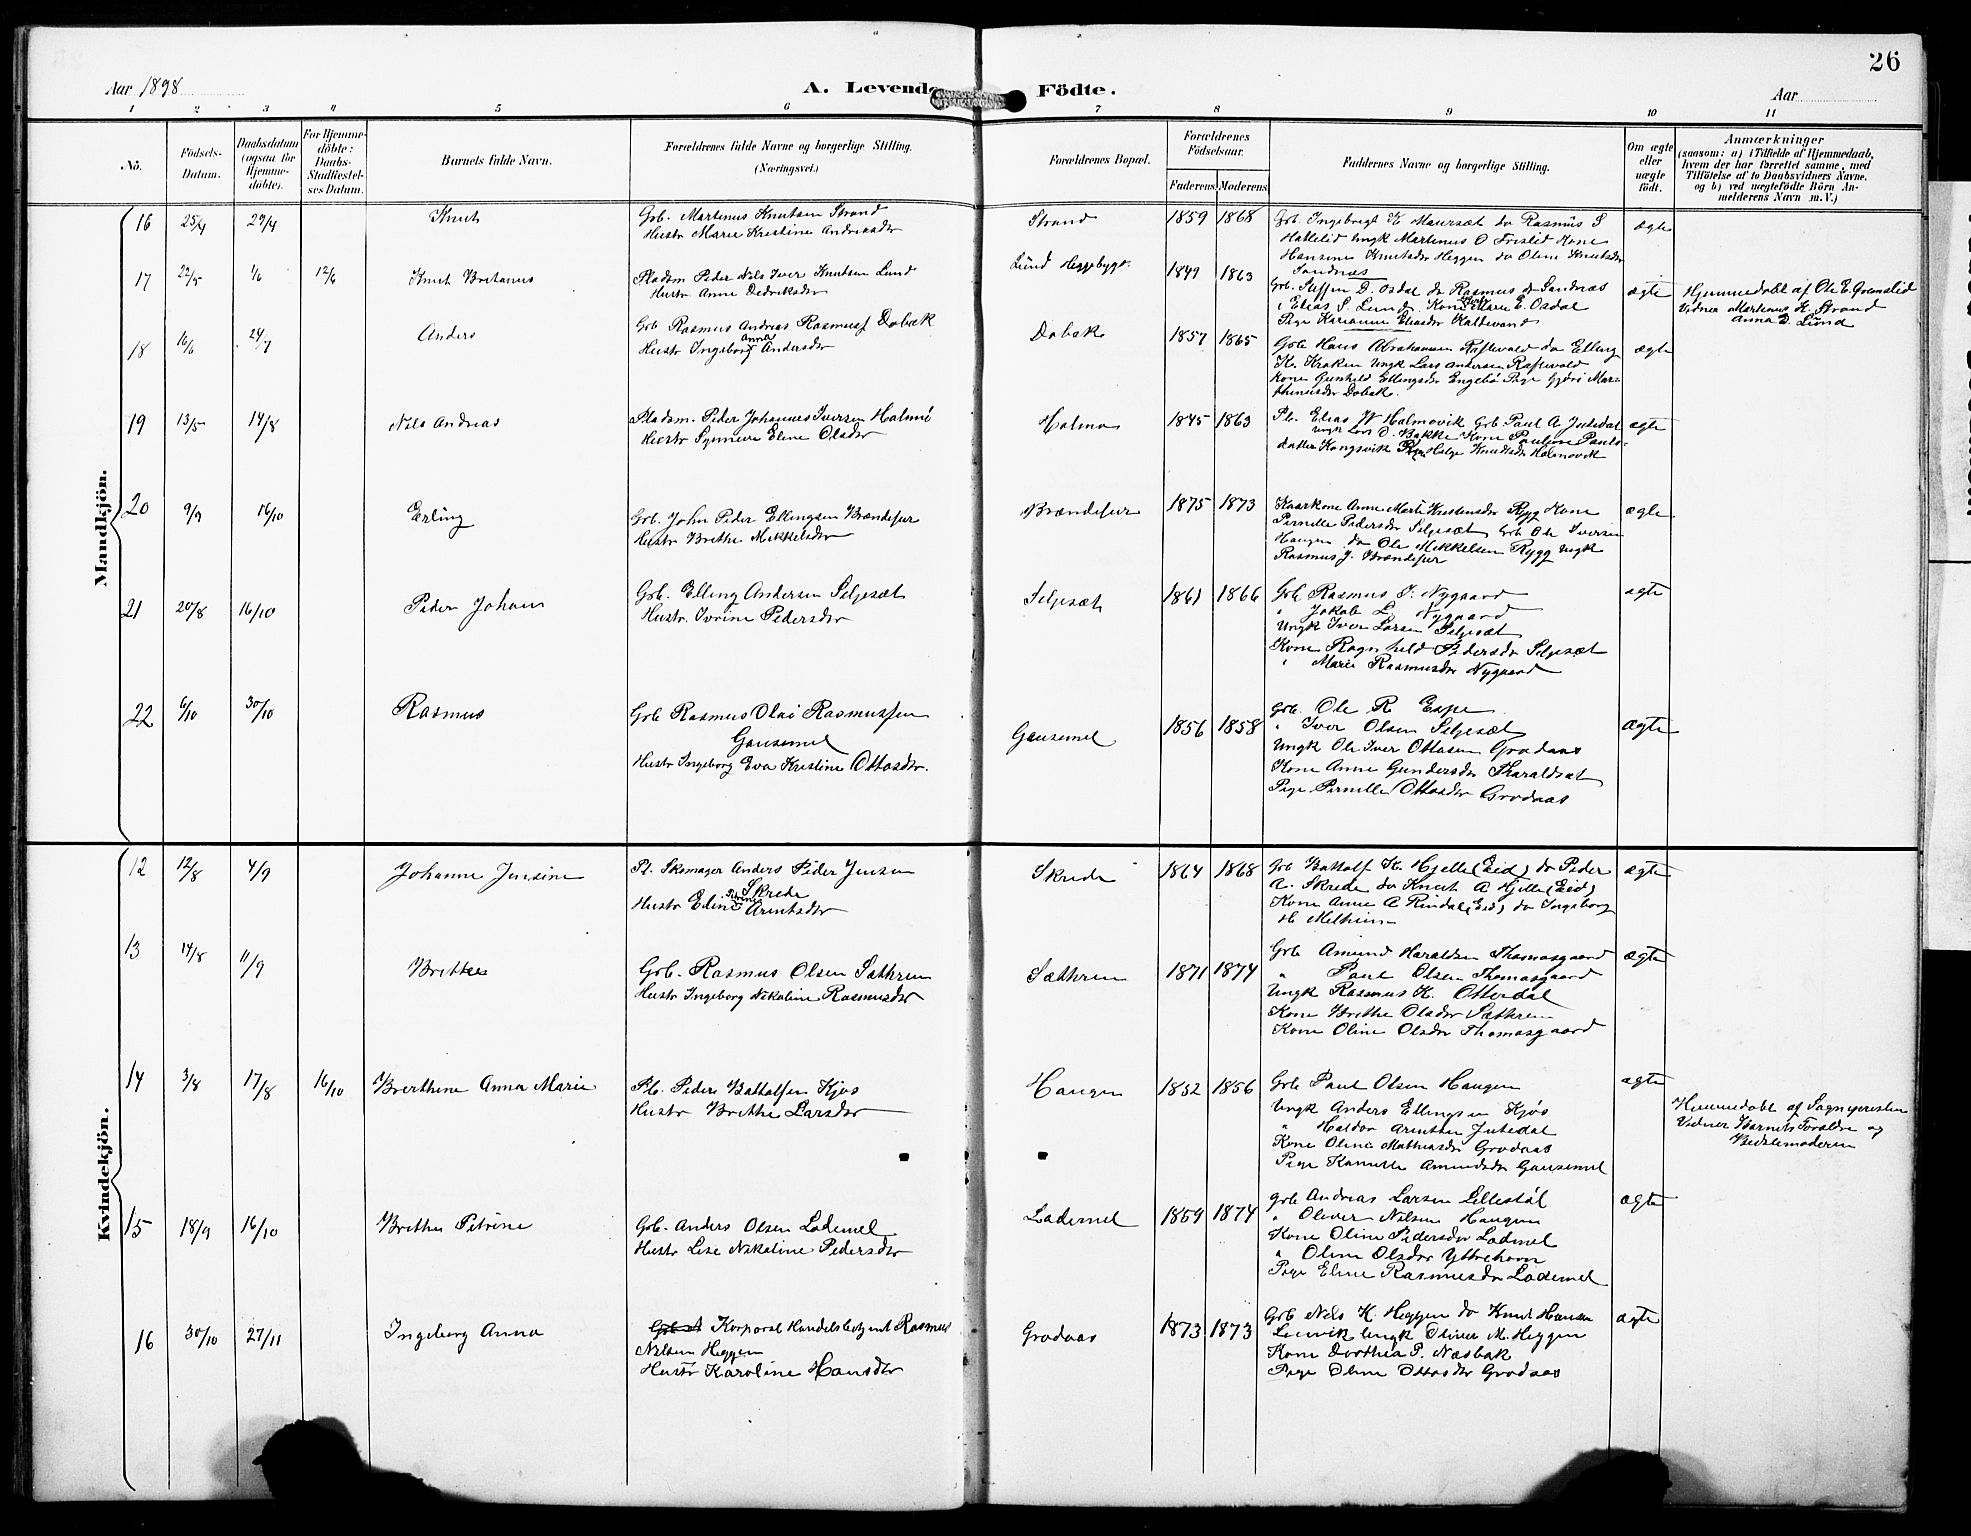 26
Aar 1898
A. Levende Födte.
Aar
1 2 3 4 5 6 7 8 9 10 11
Nö.
Födsels-
Datum.
Daabsdatum
(ogsaa for
Hjemme-
döbte).
For Hjemme-
döbte:
Daabs-
Stadfæstel-
ses Datum.
Barnets fulde Navn.
Forældrenes fulde Navne og borgerlige Stilling.
(Næringsvei.)
Forældrenes Bopæl.
Forældrenes
Födselsaar.
Faderens Moderens
Faddernes Navne og borgerlige Stilling.
Om ægte
eller
uægte
födt.
Anmærkninger
(saasom: a) i Tilfælde af Hjemmedaab,
hvem der har forrettet samme, med
Tilföielse af to Daabsvidners Navne,
og b) ved uægtefödte Börn An-
melderens Navn m. V.)
Mandkjön.
16 25/4 29/4 Knut
Grb. Martinus Knutsen Strand
Hustr Marie Kristine Andreasdr
Strand 1859 1868
Grb Ingebrigt K Maursæt do Rasmus S
Hatlelid Ungk Martinus O Frislid Kone
Hansine Knutsdr Heggen do Oline Knutsdr
Sandnæs
ægte
17 22/5 1/6 12/6 Knut Britanus
Pladsm Peder Nils Iver Knutsen Lund
Hustr Anne Dedriksdr
Lund Heggebygd 1849 1863
Grb. Steffen D. Osdal do Rasmus Sandnæs
Elias S. Lund. Kone Elsie E. Osdal
Pige Karianne Eliasdr Kaldvand
ægte
Hjemmedøbt af Ole E. Qvenslid
Vidner Martinus K. Strand
Anna D. Lund
18 16/6 24/7 Anders
Grb Rasmus Andreas Rasmuss Dobak
Hustr Ingeborg Anna Andersdr
Dobak 1857 1865
Grb Hans Abrahamsen Raftevold do Elling
K. Kraken Ungk Lars Andersen Raftevold
Kone Gunhild Ellingsdr Engebø Pige Gjøri Mar-
thinusdr Dobak.
ægte
19 13/5 14/8 Nils Andreas
Pladsm. Peder Johannes Iversen Holmö
Hustr Synneve Eline Olsdr
Holmo 1845 1863
Pl. Elias W Holmøvik Grb Paul A Jostedal
Ungk Lars O. Bakke Kone Pauline Pauls-
datter Kongsvik Pige Helge Knudsdr Holmøvik
ægte
20 9/9 16/10 Erling
Grb. John Peder Ellingsen Brændefur
Hustr Brithe Mikkelsdr
Brændefur 1875 1873
Kaarkone Anne Marte Kristensdr Rygg Kone
Pernille Pedersdr Seljesæt Grb Ole Iversen
Haugen do Ole Mikkelsen Rygg Ungk
Rasmus J. Brændefur
ægte
21 20/8 16/10 Peder Johan
Grb. Elling Andersen Seljesæt
Hustr. Ivrine Pedersdr
Seljesæt 1861 1866
Grb Rasmus I. Nygaard
" Jakob L. Nygaard
Ungk Iver Larsen Seljesæt
Kone Ragnhild Pedersdr Seljesæt
" Marie Rasmusdr Nygaard
ægte
22 6/10 30/10 Rasmus
Grb Rasmus Olai Rasmussen
Gausemel
Hustr Ingeborg Eva Kristine Ottosdr.
Gausemel 1856 1858
Grb. Ole R Espe
" Iver Olsen Seljesæt
Ungk Ole Iver Ottosen Grodaas
Kone Anne Gundersdr Tharaldsæt
Pige Pernille Ottosdr Grodaas
ægte
Kvindekjön.
12 12/8 4/9 Johanne Jensine
Pl. Skomager Anders Peder Jensen
Skrede
Hustr Eline Sirine Arntsdr
Skrede 1864 1868
Grb Battolf K Hjelle (Eid) do Peder
A. Skrede do Knut A Hjelle (Eid)
Kone Anne A Rindal (Eid) do Ingeborg
H Melheim
ægte
13 14/8 11/9 Brithe
Grb. Rasmus Olsen Sæthren
Hustr Ingeborg Nikoline Rasmusdr
Sæthren 1871 1874
Grb Amund Haraldsen Thomasgaard
" Paul Olsen Thomasgaard
Ungk Rasmus K. Otterdal
Kone Brithe Olsdr Sæthren
Kone Oline Olsdr Thomasgaard
ægte
14 3/8 17/8 16/10 Brerthine Anna Marie
Pl. Peder Battolfsen Kjøs
Hustr Brithe Larsdr
Haugen 1852 1856
Grb Paul Olsen Haugen
Ungk Anders Ellingsen Kjøs
" Haldor Arentsen Jutedal
Kone Oline Mathiasdr Grodaas
Pige Kamille Amundsdr Gausemel
ægte
Hjemmedøbt af Sognepresten
Vidner Barnets Forældre og
Bedstemoderen
15 18/9 16/10 Brithe Petrine
Grb. Anders Olsen Lødemel
Hustr Lise Nikoline Pedersdr
Lødemel 1859 1874
Grb Andreas Larsen Lillestøl
" Oliver Nilsen Haugen
Kone Oline Pedersdr Lødemel
" Oline Olsdr Yttrehorn
Pige Eline Rasmusdr Lødemel
ægte
16 30/10 27/11 Ingeborg Anna
Korporal Handelsbetjent Rasmus
Nilsen Heggen
Hustr Karoline Hansdr
Grodaas 1873 1873
Grb Nils K. Heggen do Knut Hansen
Leirvik Ungk Oliver M. Heggen
Kone Dorthea P. Næsbak
Pige Oline Ottosdr Grodaas
ægte